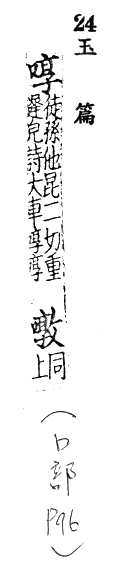 24
玉篇
啍
徒孫他昆二切重
遲皃詩大車啍啍
噋
同
上
(口部 P96)